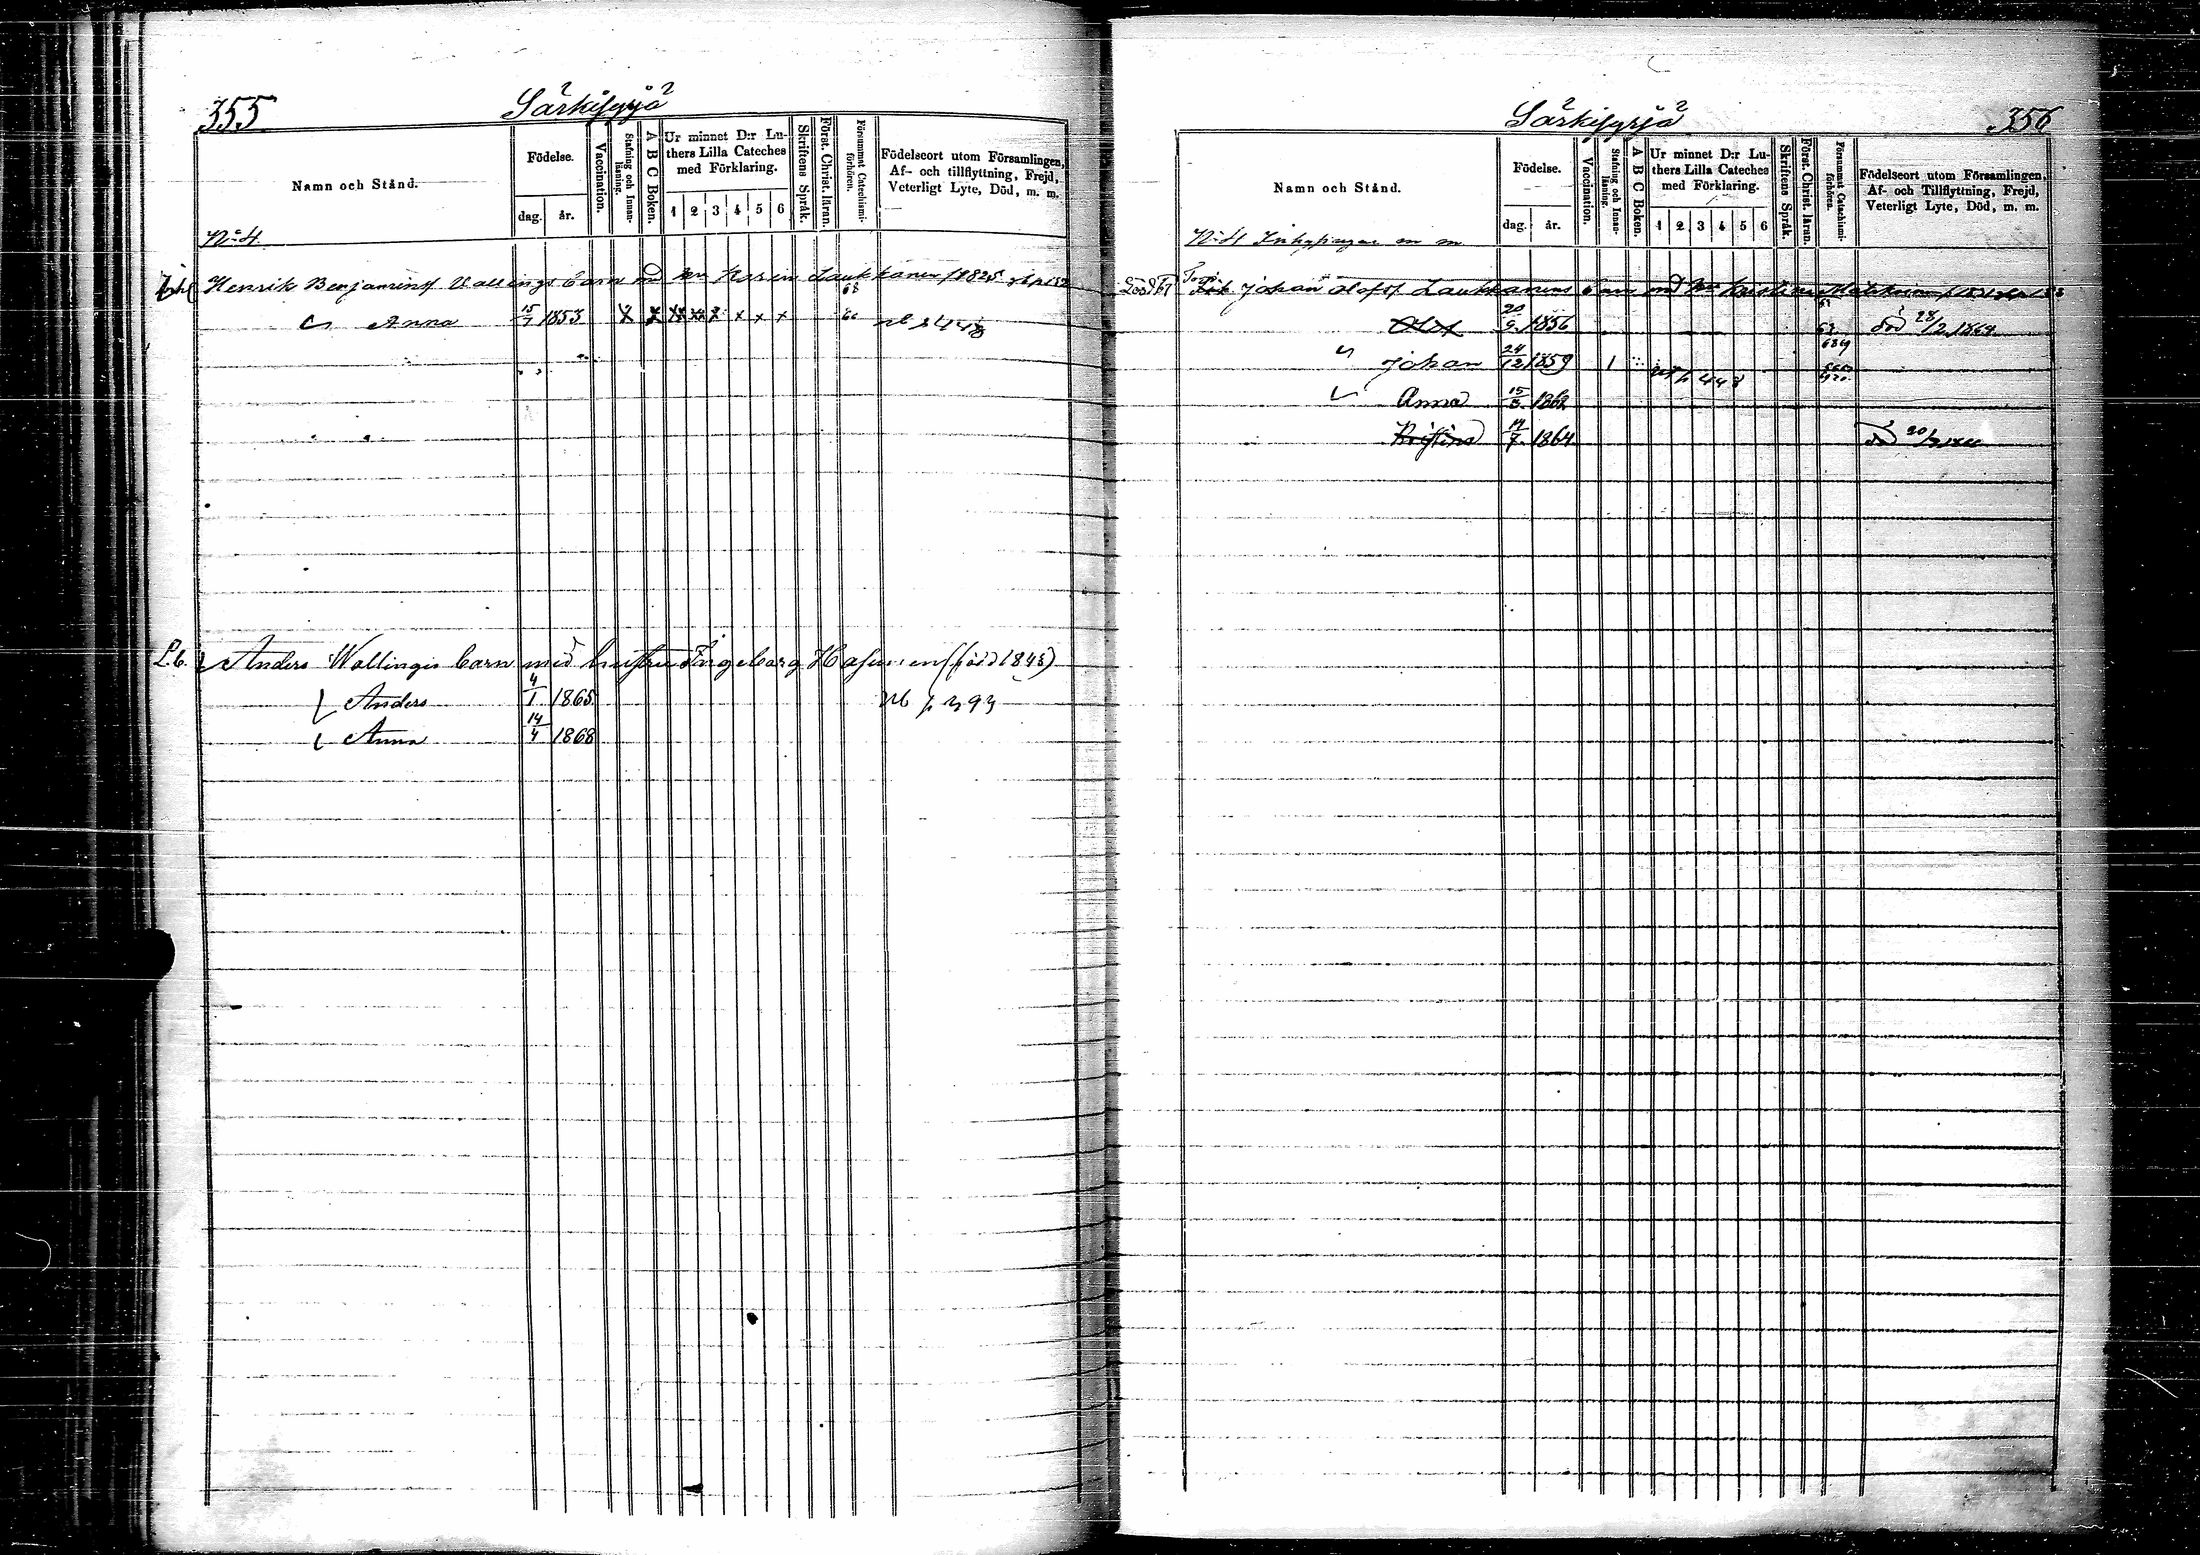 355
Särkisyrjä
Namn och Stånd.
Födelse.
dag.
år.
Vaccination.
Stafning och Innan-
läsning.
A B C Boken.
Ur minnet D:r Lu-
thers Lilla Cateches
med Förklaring.
1 2 3 4 5 6
Skriftens Språk.
Först. Christ. läran.
Försummat Catechismi-
förhören.
Födelseort utom Församlingen,
Af- och tillflyttning, Frejd,
Veterligt Lyte, Död, m. m.
N:o 4
Henrik Benjaminsf Vallings barn md Laukkanen f 1825
68
Anna 15/7 1853 X X X X X x x x
L.b. Anders Wallingis barn med hustru Ingeborg (född 1843)
Anders 4/1 1865 p 393
Anna 14/4 1868
356
Särkisyrjä
Namn och Stånd.
Födelse.
dag.
år.
Vaccination.
Stafning och Innan-
läsning.
A B C Boken.
Ur minnet D:r Lu-
thers Lilla Cateches
med Förklaring.
1 2 3 4 5 6
Skriftens Språk.
Först. Christ. läran.
Försummat Catechismi-
förhören.
Födelseort utom Församlingen,
Af- och Tillflyttning, Frejd,
Veterligt Lyte, Död, m. m.
N:o 4 Inhysingar m m
Johan Olofsf Laukkanens barn md Kristina
Olof 20/9 1856 död 28/2 1864
Johan 24/12 1859 1
Anna 15/3 1862
Kristina 14/7 1864